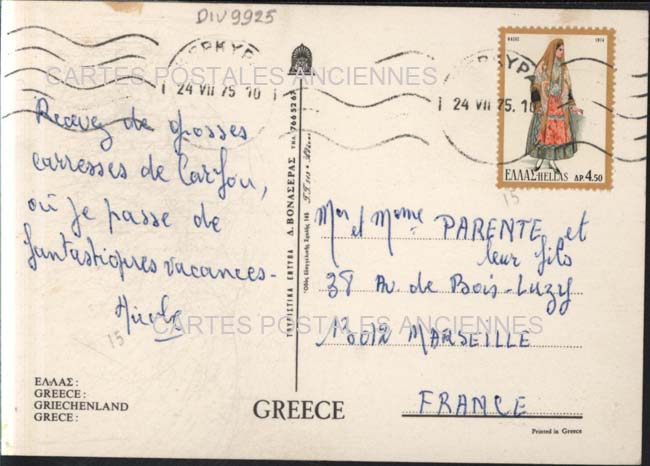 DIV9925
ΚΕΡΚΥΡΑ
24 VII 75. 10
24 VII 75. 10
1974
ΕΛΛΑΣ HELLAS ΔΡ. 4.50
CARTES POSTALES ANCIENNES
Recevez de grosses
carresses de Corfou,
où je passe de
fantastiques vacances-
15
Mor et Mame PARENTE et
leur fils
38 Av. de Bois-Luzy
13012 MARSEILLE
FRANCE
15
CARTES POSTALES ANCIENNES
ΤΟΥΡΙΣΤΙΚΑ ΕΝΤΥΠΑ Δ. ΒΟΝΑΣΕΡΑΣ
ΤΗΛ. 766526
ΕΛΛΑΣ:
GREECE:
GRIECHENLAND
GRECE:
GREECE
Printed in Greece